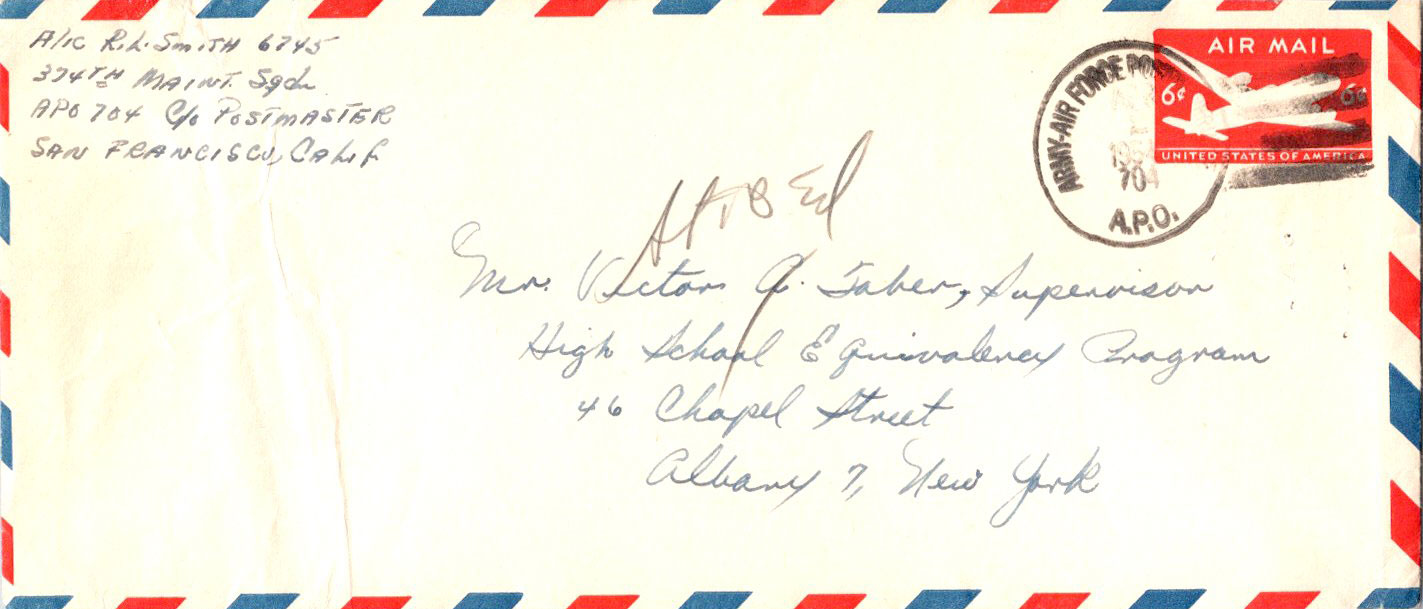 A/1C R.L. SMITH 6745
374TH MAINT. Sqd.
APO 704 C/o POSTMASTER
SAN FRANCISCO, CALIF
AIR MAIL
6¢ 6¢
UNITED STATES OF AMERICA
ARMY-AIR FORCE
704
A.P.O.
Ed
Mr. Victor A. Taber, Supervisor
High School Equivalency Program
46 Chapel Street
Albany 7, New York